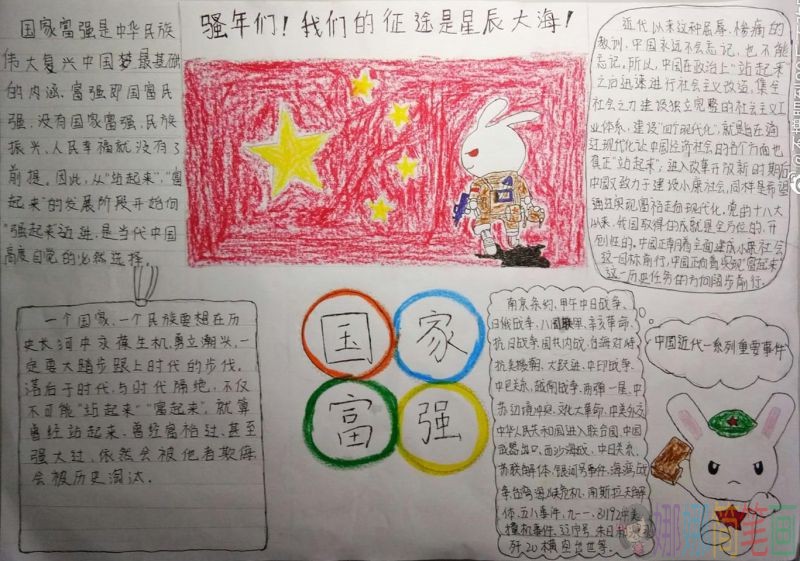 骚年们！我们的征途是星辰大海！
国家富强是中华民族
伟大复兴中国梦最基础
的内涵，富强即国富民
强，没有国家富强、民族
振兴、人民幸福就没有了
前提。因此，从“站起来”“富
起来”的发展阶段开始向
“强起来”迈进，是当代中国
高度自觉的必然选择。
近代以来这种屈辱、惨痛的
教训，中国永远不会忘记，也不能
忘记。所以，中国在政治上“站起来”
之后迅速进行社会主义改造，集全
社会之力建设独立完整的社会主义工
业体系，建设“四个现代化”，就是旨在通
过现代化让中国经济社会的各个方面也
真正“站起来”；进入改革开放新时期后
中国又致力于建设小康社会，同样是希望
通过实现富裕走向现代化。党的十八大
以来，我国取得的成就是全方位的、开
创性的。中国正朝着全面建成小康社会
这一目标前行，中国正向着实现“富起来”
这一历史任务的方向阔步前行。
一个国家、一个民族要想在历
史长河中永葆生机、勇立潮头，一
定要大踏步跟上时代的步伐。
落后于时代，与时代隔绝，不仅
不可能“站起来”“富起来”，就算
曾经站起来、曾经富裕过、甚至
强大过，依然会被他者欺侮
会被历史淘汰。
国 家
富 强
南京条约、甲午中日战争、
日俄战争、八国联军、辛亥革命、
抗日战争、国共内战、台海对峙
抗美援朝、大跃进、中印战争、
中巴关系、越南战争、两弹一星、中
苏边境冲突、文化大革命、中美外交
中华人民共和国进入联合国、中国
武器出口、西沙海战、中日关系、
苏联解体、银河号事件、海湾战
争、台湾海峡危机、南斯拉夫解
体、五八事件、九一一、81192中美
撞机事件、辽宁号、朱日和
歼20横空出世等。
中国近代一系列重要事件
简笔画